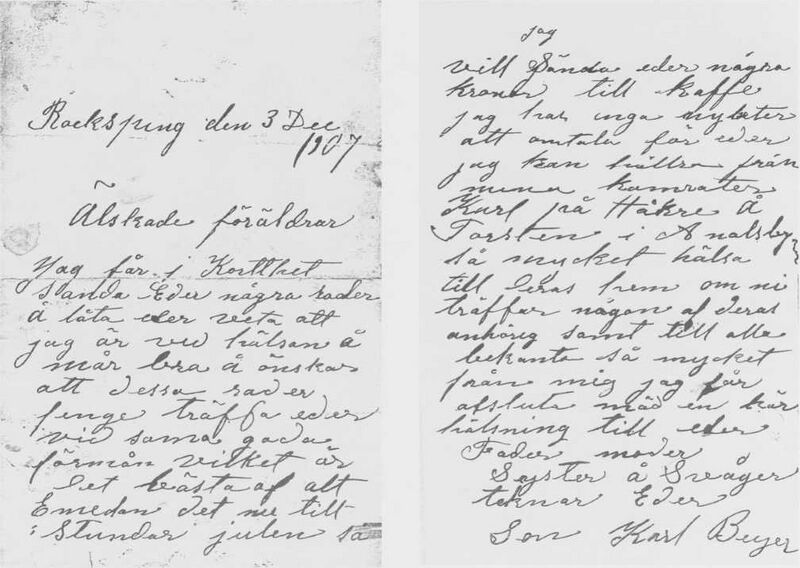 Rockspring den 3 Dec
1907
Älskade föräldrar
Jag får i Kortthet
sända Eder några rader
å låta eder veta att
jag är vid hälsan å
mår bra å önskar
att dessa rader
finge träffa eder
vid sama goda
förmån vilket är
det bästa af alt
Emedan det nu till-
stundar julen så
jag
vill Sända eder några
kronor till kaffe
jag har inga nyheter
att omtala för eder
jag kan hälsa från
mina kamrater
Karl på Håkre å
Torsten i Analsby
så mycket hälsa
till deras hem om ni
träffar någon af deras
anhörig samt till alla
bekanta så mycket
från mig jag får
afsluta mäd en kär
hälsning till eder
Fader moder
Syster å Svåger
teknar Eder
Son Karl Beyer